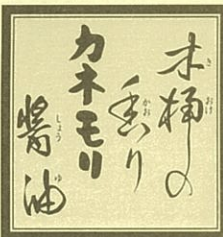 木桶の
香り
カネモリ
醤油